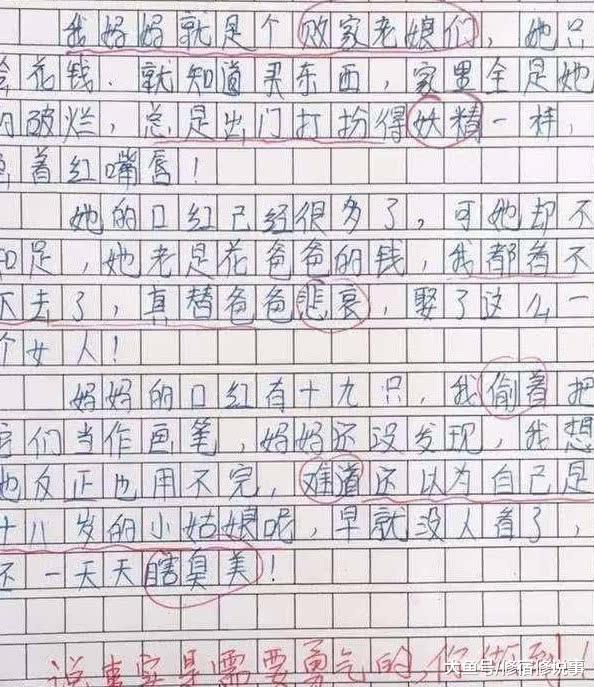 我妈妈就是个败家老娘们，她只
花钱．就知道买东西，家里全是她
的破烂，总是出门打扮得妖精一样，
着红嘴唇！
她的口红已经很多了，可她却不
知足，她老是花爸爸的钱，我都看不
下去了，真替爸爸悲哀，娶了这么一
个女人！
妈妈的口红有十九只，我偷着把
它们当作画笔，妈妈还没发现，我想
她反正也用不完，难道还以为自己是
十八岁的小姑娘呢，早就没人看了，
还一天天瞎臭美！
说事实是需要勇气的，你做到！
大鱼号/修宿修说事